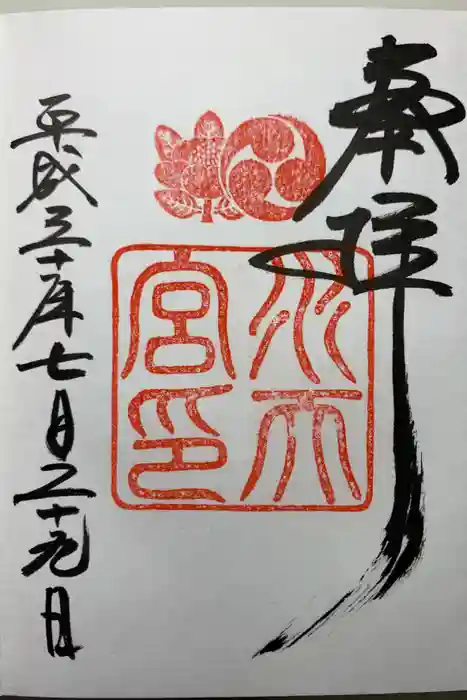 奉拝
水天宮印
平成三十年七月二十九日